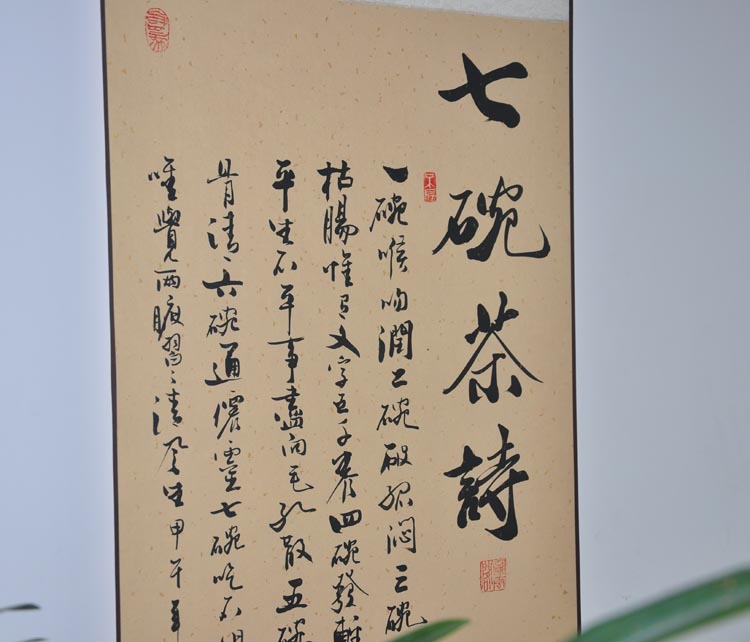 七碗茶詩
一碗喉吻潤二碗破孤悶三碗
枯腸惟有文字五千卷四碗發輕
平生不平事盡向毛孔散五碗
骨清六碗通僊靈七碗吃不得
唯覺兩腋習〻清風生甲午年